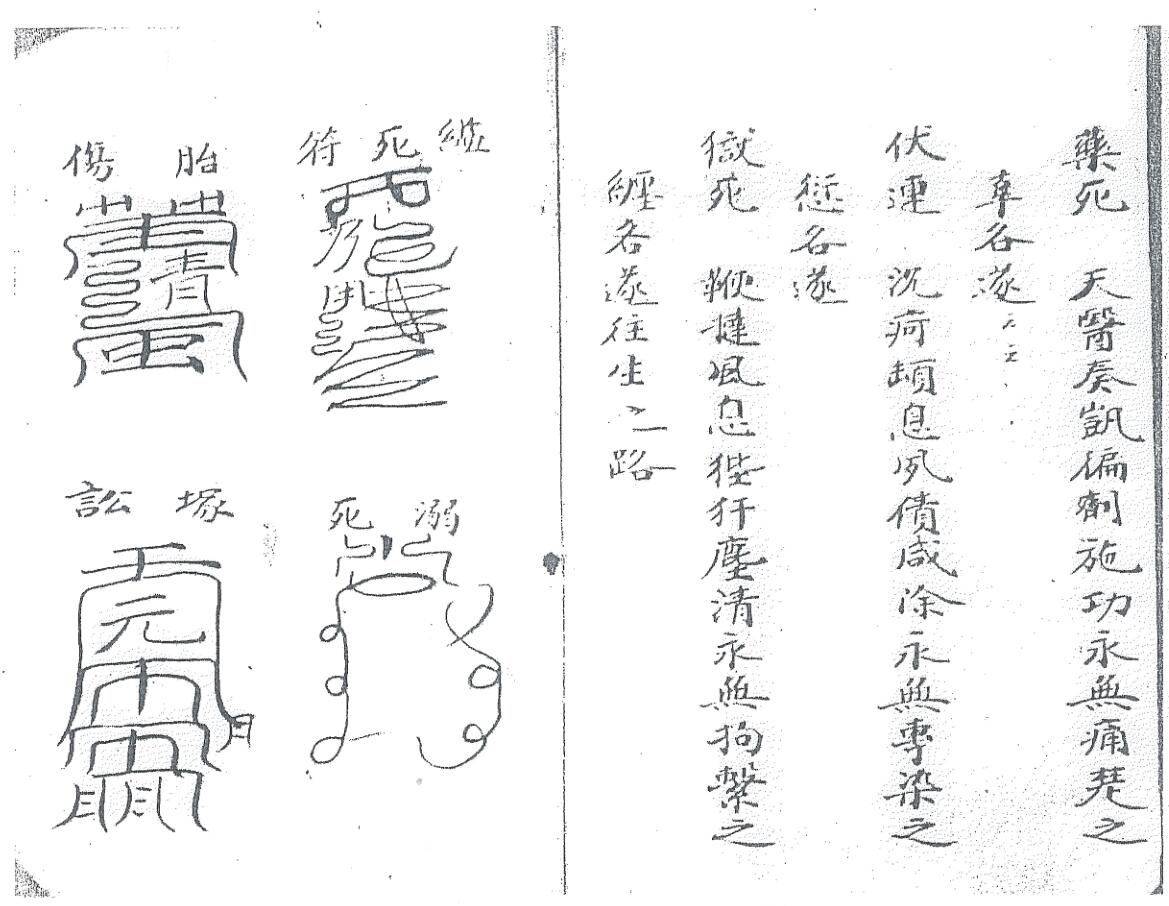 藥死　天醫奏凱偏劑施功永無痛楚之
車各遂
伏連　沉疴頓息夙債咸除永無專染之
愆各遂
獄死　鞭撻風息狴犴塵清永無拘繫之
纏各遂往生之路
死符
溺死
胎傷
青
塚訟
元
月